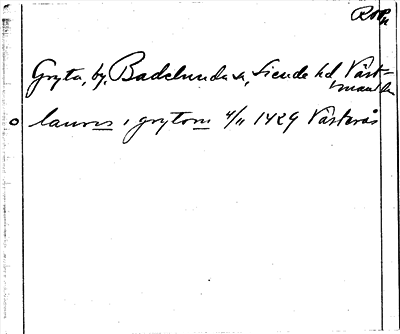 Gryta, by, Badelunda sn, Siende hd, Väst-
manland
laurens i grytom 4/11 1429 Västerås